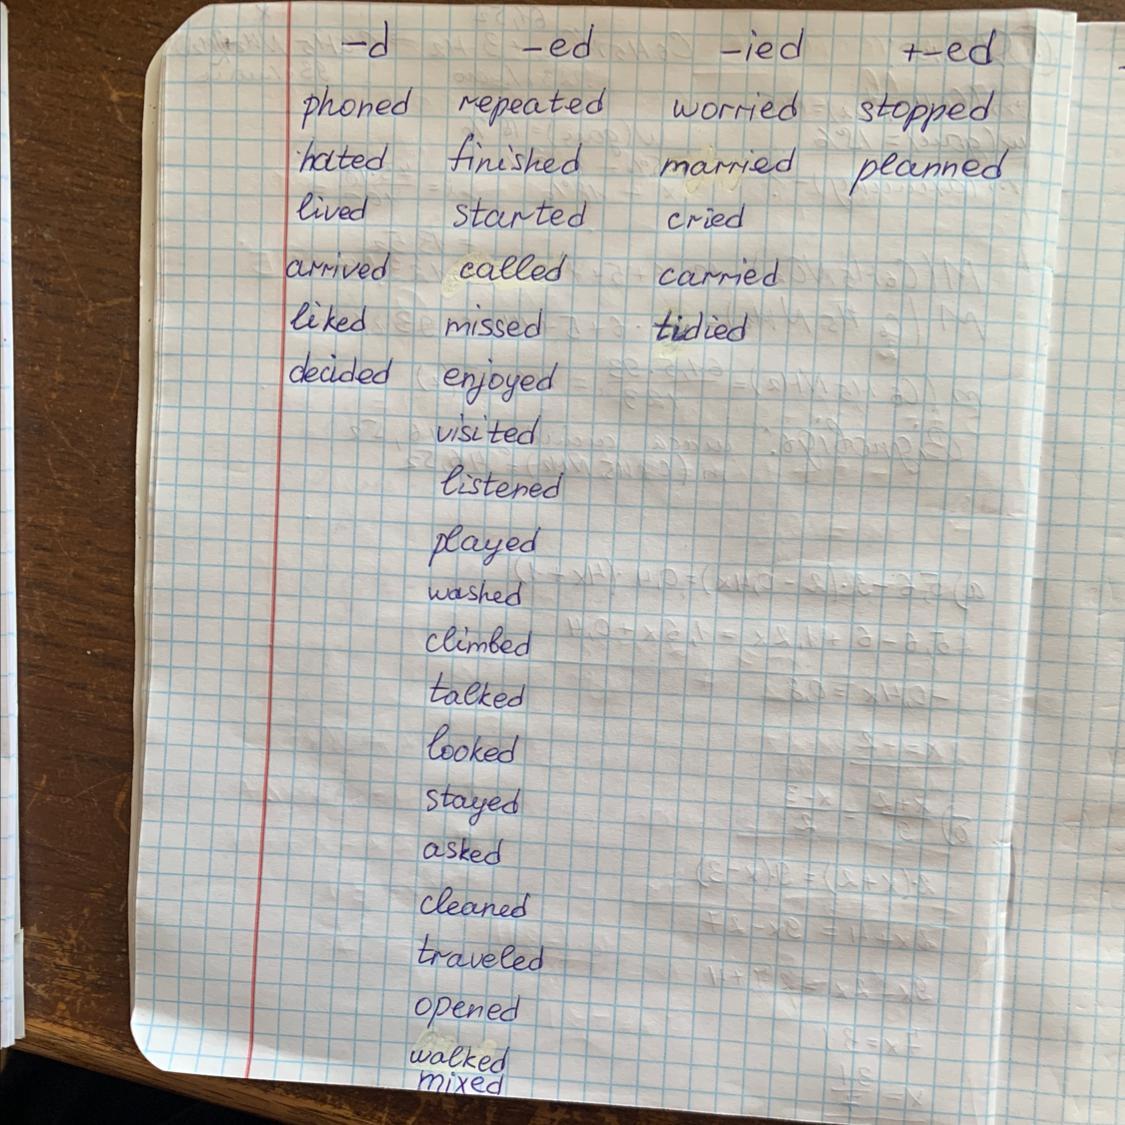 -d -ed -ied +-ed
phoned repeated worried stopped
hated finished married planned
lived started cried
arrived called carried
liked missed tidied
decided enjoyed
visited
listened
played
washed
climbed
talked
looked
stayed
asked
cleaned
traveled
opened
walked
mixed